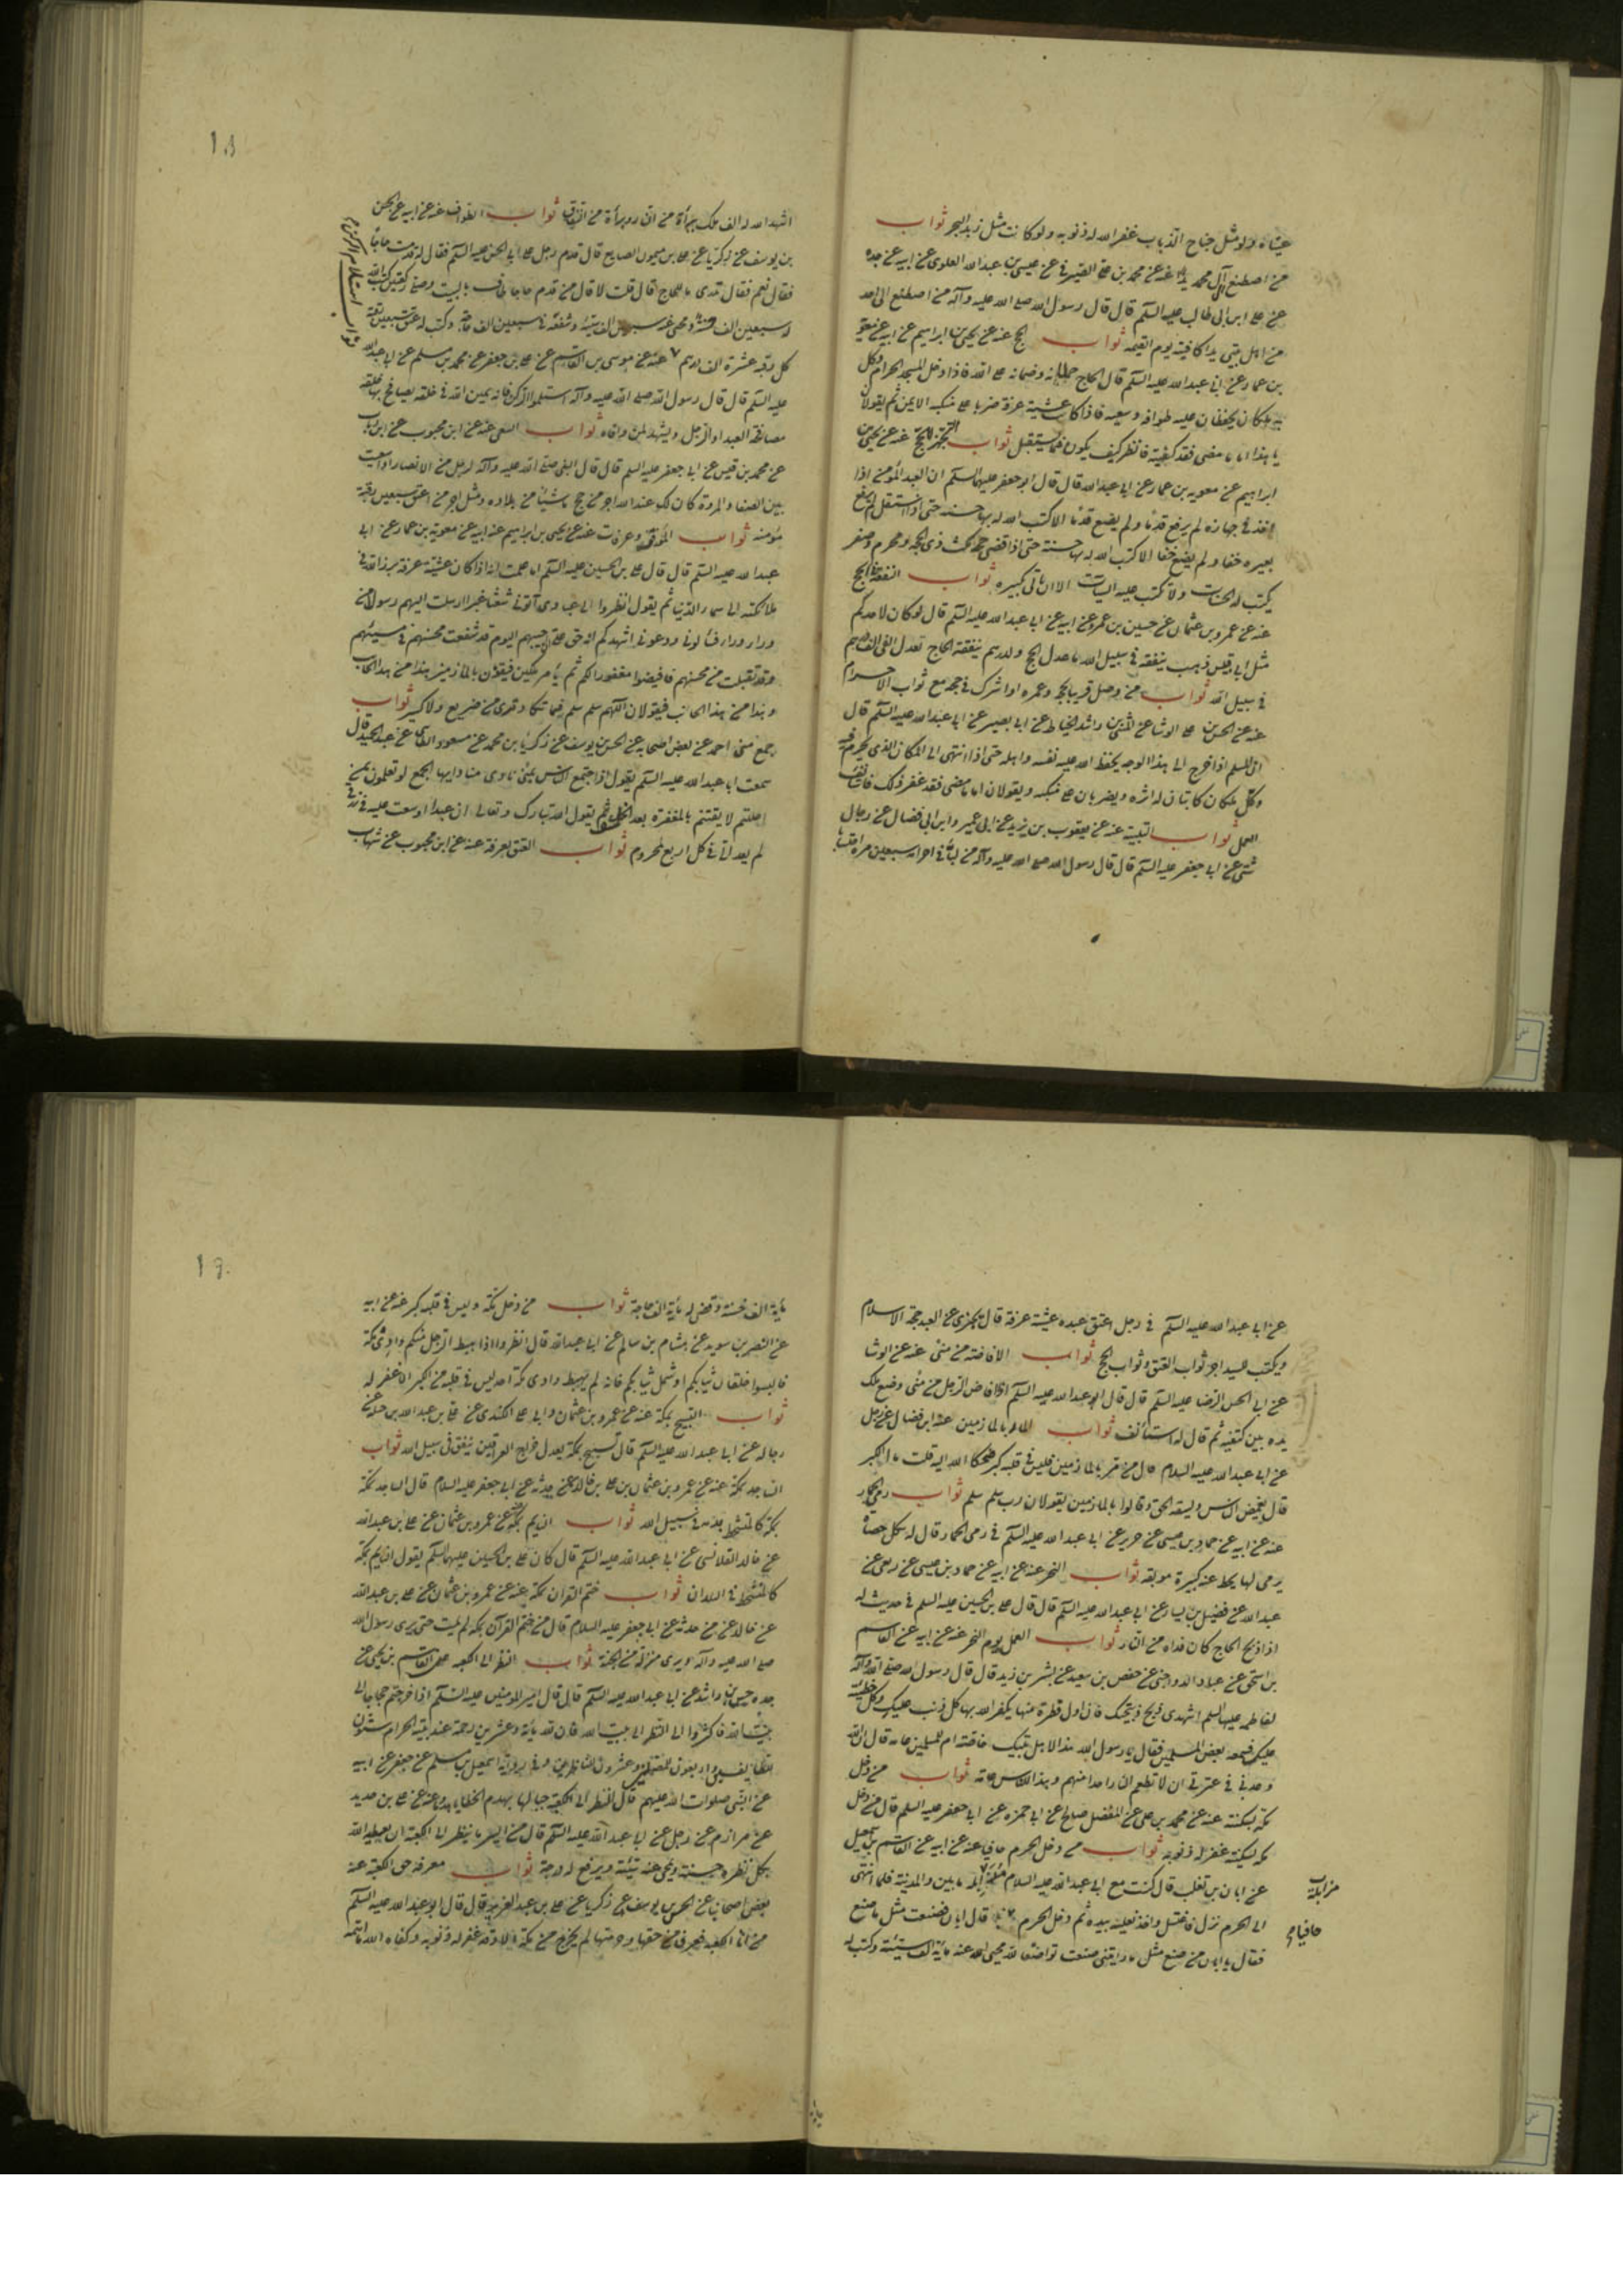 عيناه ولو مثل جناح الذباب غفر الله له ذنوبه ولو كانت مثل زبد البحر ثواب
من اصطنع الى آل محمد يدا عنه عن محمد بن على الصيرفي عن عيسى بن عبد الله العلوى عن ابيه عن جده
عن على ابن ابى طالب عليه السلم قال قال رسول الله صلى الله عليه وآله من اصطنع الى احد
من اهل بيتى يدا كافيته يوم القيمه ثواب الحج عنه عن يحيى بن ابراهيم عن ابيه عن معوية
بن عمار عن ابى عبد الله عليه السلم قال الحاج حملانه وضمانه على الله فاذا دخل المسجد الحرام وكل
به ملكان يحفظان عليه طوافه وسعيه فاذا كان عشية عرفة ضربا على منكبه الايمن ثم يقولان
يا هذا اما ما مضى فقد كفيته فانظر كيف يكون فيما يستقبل ثواب التجهز للحج عنه عن يحيى بن
ابراهيم عن معويه بن عمار عن ابى عبد الله قال قال ابو جعفر عليهما السلم ان العبد المؤمن اذا
اخذ فى جهازه لم يرفع قدما ولم يضع قدما الا كتب الله له بها حسنه حتى اذا استقل لم يرفع
بعيره خفا ولم يضع خفا الا كتب الله له بها حسنة حتى اذا قضى حجه مكث ذى الحجه ومحرم وصفر
يكتب له الحسنات ولا تكتب عليه السيئات الا ان ياتى بكبيره ثواب النفقة فى الحج
عنه عن عمرو بن عثمان عن حسين بن عمرو عن ابيه عن ابى عبد الله عليه السلم قال لو كان لاحدكم
مثل ابى قبيس ذهب ينفقه فى سبيل الله ما عدل الحج ولدرهم ينفقه الحاج تعدل الفى الف درهم
فى سبيل الله ثواب من وصل قريبا بحجه وعمره او اشرك فى حجه مع ثواب الاحرام
عنه عن الحسن بن على الوشا عن المثنى بن راشد الحناط عن ابى بصير عن ابى عبد الله عليه السلم قال
ان المسلم اذا خرج الى هذا الوجه يحفظ الله عليه نفسه واهله حتى اذا انتهى الى المكان الذى يحرم فيه
وكل ملكان كاتبان له اثره ويضربان على منكبه ويقولان اما ما مضى فقد غفر لك فاستأنف
العمل ثواب التلبية عنه عن يعقوب بن يزيد عن ابى عمير وابن ابى فضال عن رجال
شتى عن ابى جعفر عليه السلم قال قال رسول الله صلى الله عليه وآله من لبى فى احرامه سبعين مرة احتسابا
١٨
اشهد الله له الف ملك ببراة من النار وبراة من النفاق ثواب الطواف عنه عن ابيه عن الحسن
بن يوسف عن زكريا عن على بن ميمون الصايغ قال قدم رجل على ابى الحسن عليه السلم فقال له قدمت حاجا
فقال نعم فقال تدرى ما للحاج قال قلت لا قال من قدم حاجا وطاف بالبيت وصلى ركعتين كتب الله
له سبعين الف حسنة ومحى عنه سبعين الف سيئة وشفعه فى سبعين الف حاجة وكتب له عتق سبعين رقبة
كل رقبه عشرة الف درهم عنه عن موسى بن القاسم عن على بن جعفر عن محمد بن مسلم عن ابى عبد الله
ثواب استلام الركن
عليه السلم قال قال رسول الله صلى الله عليه وآله استلموا الركن فانه يمين الله فى خلقه يصافح بها خلقه
مصافحة العبد او الرجل ويشهد لمن وافاه ثواب السعى عنه عن ابن محبوب عن ابن رئاب
عن محمد بن قيس عن ابى جعفر عليه السلم قال قال النبى صلى الله عليه وآله لرجل من الانصار اذا سعيت
بين الصفا والمروة كان لك عند الله اجر من حج ماشيا من بلاده ومثل اجر من اعتق سبعين رقبة
مؤمنه ثواب الموقف وعرفات عنه عن يحيى بن ابراهيم عن ابيه عن معوية بن عمار عن ابى
عبد الله عليه السلم قال قال على بن الحسين عليه السلم اما علمت انه اذا كان عشية عرفة برز الله فى
ملائكته الى سماء الدنيا ثم يقول انظروا الى عبادى آتونى شعثا غبرا ارسلت اليهم رسولا من
وراء وراء فسألونى ودعونى اشهدكم انه حق على ان اجيبهم اليوم قد شفعت محسنهم فى مسيئهم
وقد تقبلت من محسنهم فافيضوا مغفورا لكم ثم يأمر ملكين فيقومان بالمازمين هذا من هذا الجانب
وهذا من هذا الجانب فيقولان اللهم سلم سلم فما تكاد ترى من صريع ولا كسير ثواب
جمع منى احمد عن بعض اصحابه عن الحسن بن يوسف عن زكريا بن محمد عن مسعود الطائى عن عبد الحميد قال
سمعت ابا عبد الله عليه السلم يقول اذا اجتمع الناس بمنى نادى مناد ايها الجمع لو تعلمون بمن
احللتم لايقنتم بالمغفرة بعد الخلف ثم يقول الله تبارك وتعالى ان عبدا اوسعت عليه فى رزقى
لم يفد الى فى كل اربع لمحروم ثواب العتق بعرفة عنه عن ابن محبوب عن شهاب
عن ابى عبد الله عليه السلم فى رجل اعتق عبده عشية عرفة قال يجزى عن العبد حجة الاسلام
ويكتب للسيد اجر ثواب العتق وثواب الحج ثواب الافاضة من منى عنه عن الوشا
عن ابى الحسن الرضا عليه السلم قال قال ابو عبد الله عليه السلم اذا افاض الرجل من منى وضع ملك
يده بين كتفيه ثم قال له استأنف ثواب المار بالمازمين عنه ابن فضال عن رجل
عن ابى عبد الله عليه السلام قال من مر بالمازمين وليس فى قلبه كبر ضحك الله اليه قلت ما الكبر
قال يغمض الناس ويسفه الحق وقالوا بالمازمين يقولان رب سلم سلم ثواب رمى الجمار
عنه عن ابيه عن حماد بن عيسى عن حريز عن ابى عبد الله عليه السلم فى رمى الجمار قال له بكل حصاة
يرمى لها يحط عنه كبيرة موبقه ثواب النحر عنه عن ابيه عن حماد بن عيسى عن ربعى عن
عبد الله عن فضيل بن يسار عن ابى عبد الله عليه السلم قال قال على بن الحسين عليه السلم فى حديث له
اذا ذبح الحاج كان فداه من النار ثواب العمل يوم النحر عنه عن ابيه عن القاسم
بن اسحق عن عباد الدواجنى عن حفص بن سعيد عن بشر بن زيد قال قال رسول الله صلى الله عليه وآله
لفاطمه عليها السلم اشهدى ذبح ذبيحتك فان اول قطرة منها يكفر الله بها كل ذنب عليك وكل خطيئة
عليك فسمعه بعض المسلمين فقال يا رسول الله هذا لاهل بيتك خاصة ام للمسلمين عامه قال ان الله
وعدنى فى عترتى ان لا تطعم النار احدا منهم وهذا للناس عامه ثواب من دخل
مكة بسكينة عنه عن محمد بن على عن المفضل صالح عن ابى حمزه عن ابى جعفر عليه السلم قال من دخل
مكه بسكينة غفر له ذنوبه ثواب من دخل الحرم حافيا عنه عن ابيه عن القاسم بن اسمعيل
عن ابان بن تغلب قال كنت مع ابى عبد الله عليه السلام مزامله ما بين والمدينة فلما انتهى
الى الحرم نزل فاغتسل واخذ نعليه بيده ثم دخل الحرم قال ابان فصنعت مثل ما صنع
حافيا
فقال يا ابان من صنع مثل ما رايتنى صنعت تواضعا لله محى الله عنه مأية الف سيئة وكتب له
١٩
مأية الف حسنة وقضى له مأية الف حاجة ثواب من دخل مكة وليس فى قلبه كبر عنه عن ابيه
عن النضر بن سويد عن هشام بن سالم عن ابى عبد الله قال انظروا اذا هبط الرجل منكم وادى مكة
فالبسوا خلقان ثيابكم او شمل ثيابكم فانه لم يهبط وادى مكة احد ليس فى قلبه من الكبر الا غفر له
ثواب التسبيح بمكة عنه عن عمرو بن عثمان وابى على الكندى عن على بن عبد الله بن جبلة عن
رجاله عن ابى عبد الله عليه السلم قال تسبيح بمكة يعدل خراج العراقين ينفق فى سبيل الله ثواب
الساجد بمكة عنه عن عمرو بن عثمان بن على بن خالد عمن حدثه عن ابى جعفر عليه السلام قال الساجد بمكة
بمكة كالمتشحط بدمه فى سبيل الله ثواب النايم بمكة عنه عن عمرو بن عثمان عن على بن عبد الله
عن خالد القلانسى عن ابى عبد الله عليه السلم قال كان على بن الحسين عليهما السلم يقول النايم بمكة
كالمتشحط فى البلدان ثواب ختم القران بمكة عنه عن عمرو بن عثمان عن على بن عبد الله
عن خالد عن من حدثه عن ابى جعفر عليه السلام قال من ختم القرآن بمكه لم يمت حتى يرى رسول الله
صلى الله عليه وآله ويرى منزله من الجنة ثواب النظر الى الكعبه عن القاسم بن يحيى عن
جده حسن بن راشد عن ابى عبد الله عليه السلم قال قال امير المومنين عليه السلم اذا خرجتم حجاجا الى
بيت الله فاكثروا الى النظر الى بيت الله فان لله مأية وعشرين رحمة عند بيته الحرام ستون
للطايفين واربعون للمصلين وعشرون للناظرين وفى رواية اسمعيل بن مسلم عن جعفر عن ابيه
عن النبى صلوات الله عليهم قال النظر الى الكعبة حبا لها يهدم الخطايا هدما عنه عن على بن حديد
عن مرازم عن رجل عن ابى عبد الله عليه السلم قال من ايسر ما ينظر الى الكعبة ان يعطيه الله
بكل نظره حسنة ويمحى عنه سيئة ويرفع له درجة ثواب معرفة حق الكعبة عنه
بعض اصحابنا عن الحسن بن يوسف عن زكريا عن على بن عبد العزيز قال قال ابو عبد الله عليه السلم
من اتى الكعبه فعرف من حقها وحرمتها لم يخرج من مكة الا وقد غفر له ذنوبه وكفاه الله ما اهمه